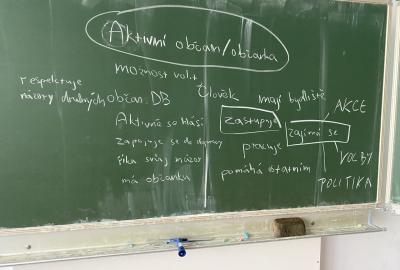 Aktivní občan/občanka
možnost volit
respektuje
názory druhých
občan DB
Člověk
mají bydliště
AKCE
Aktivně se hlásí
zastupuje
zajímá se
zapojuje se do
pracuje
VOLBY
říká svůj názor
pomáhá ostatním
má občanku
POLITIKA